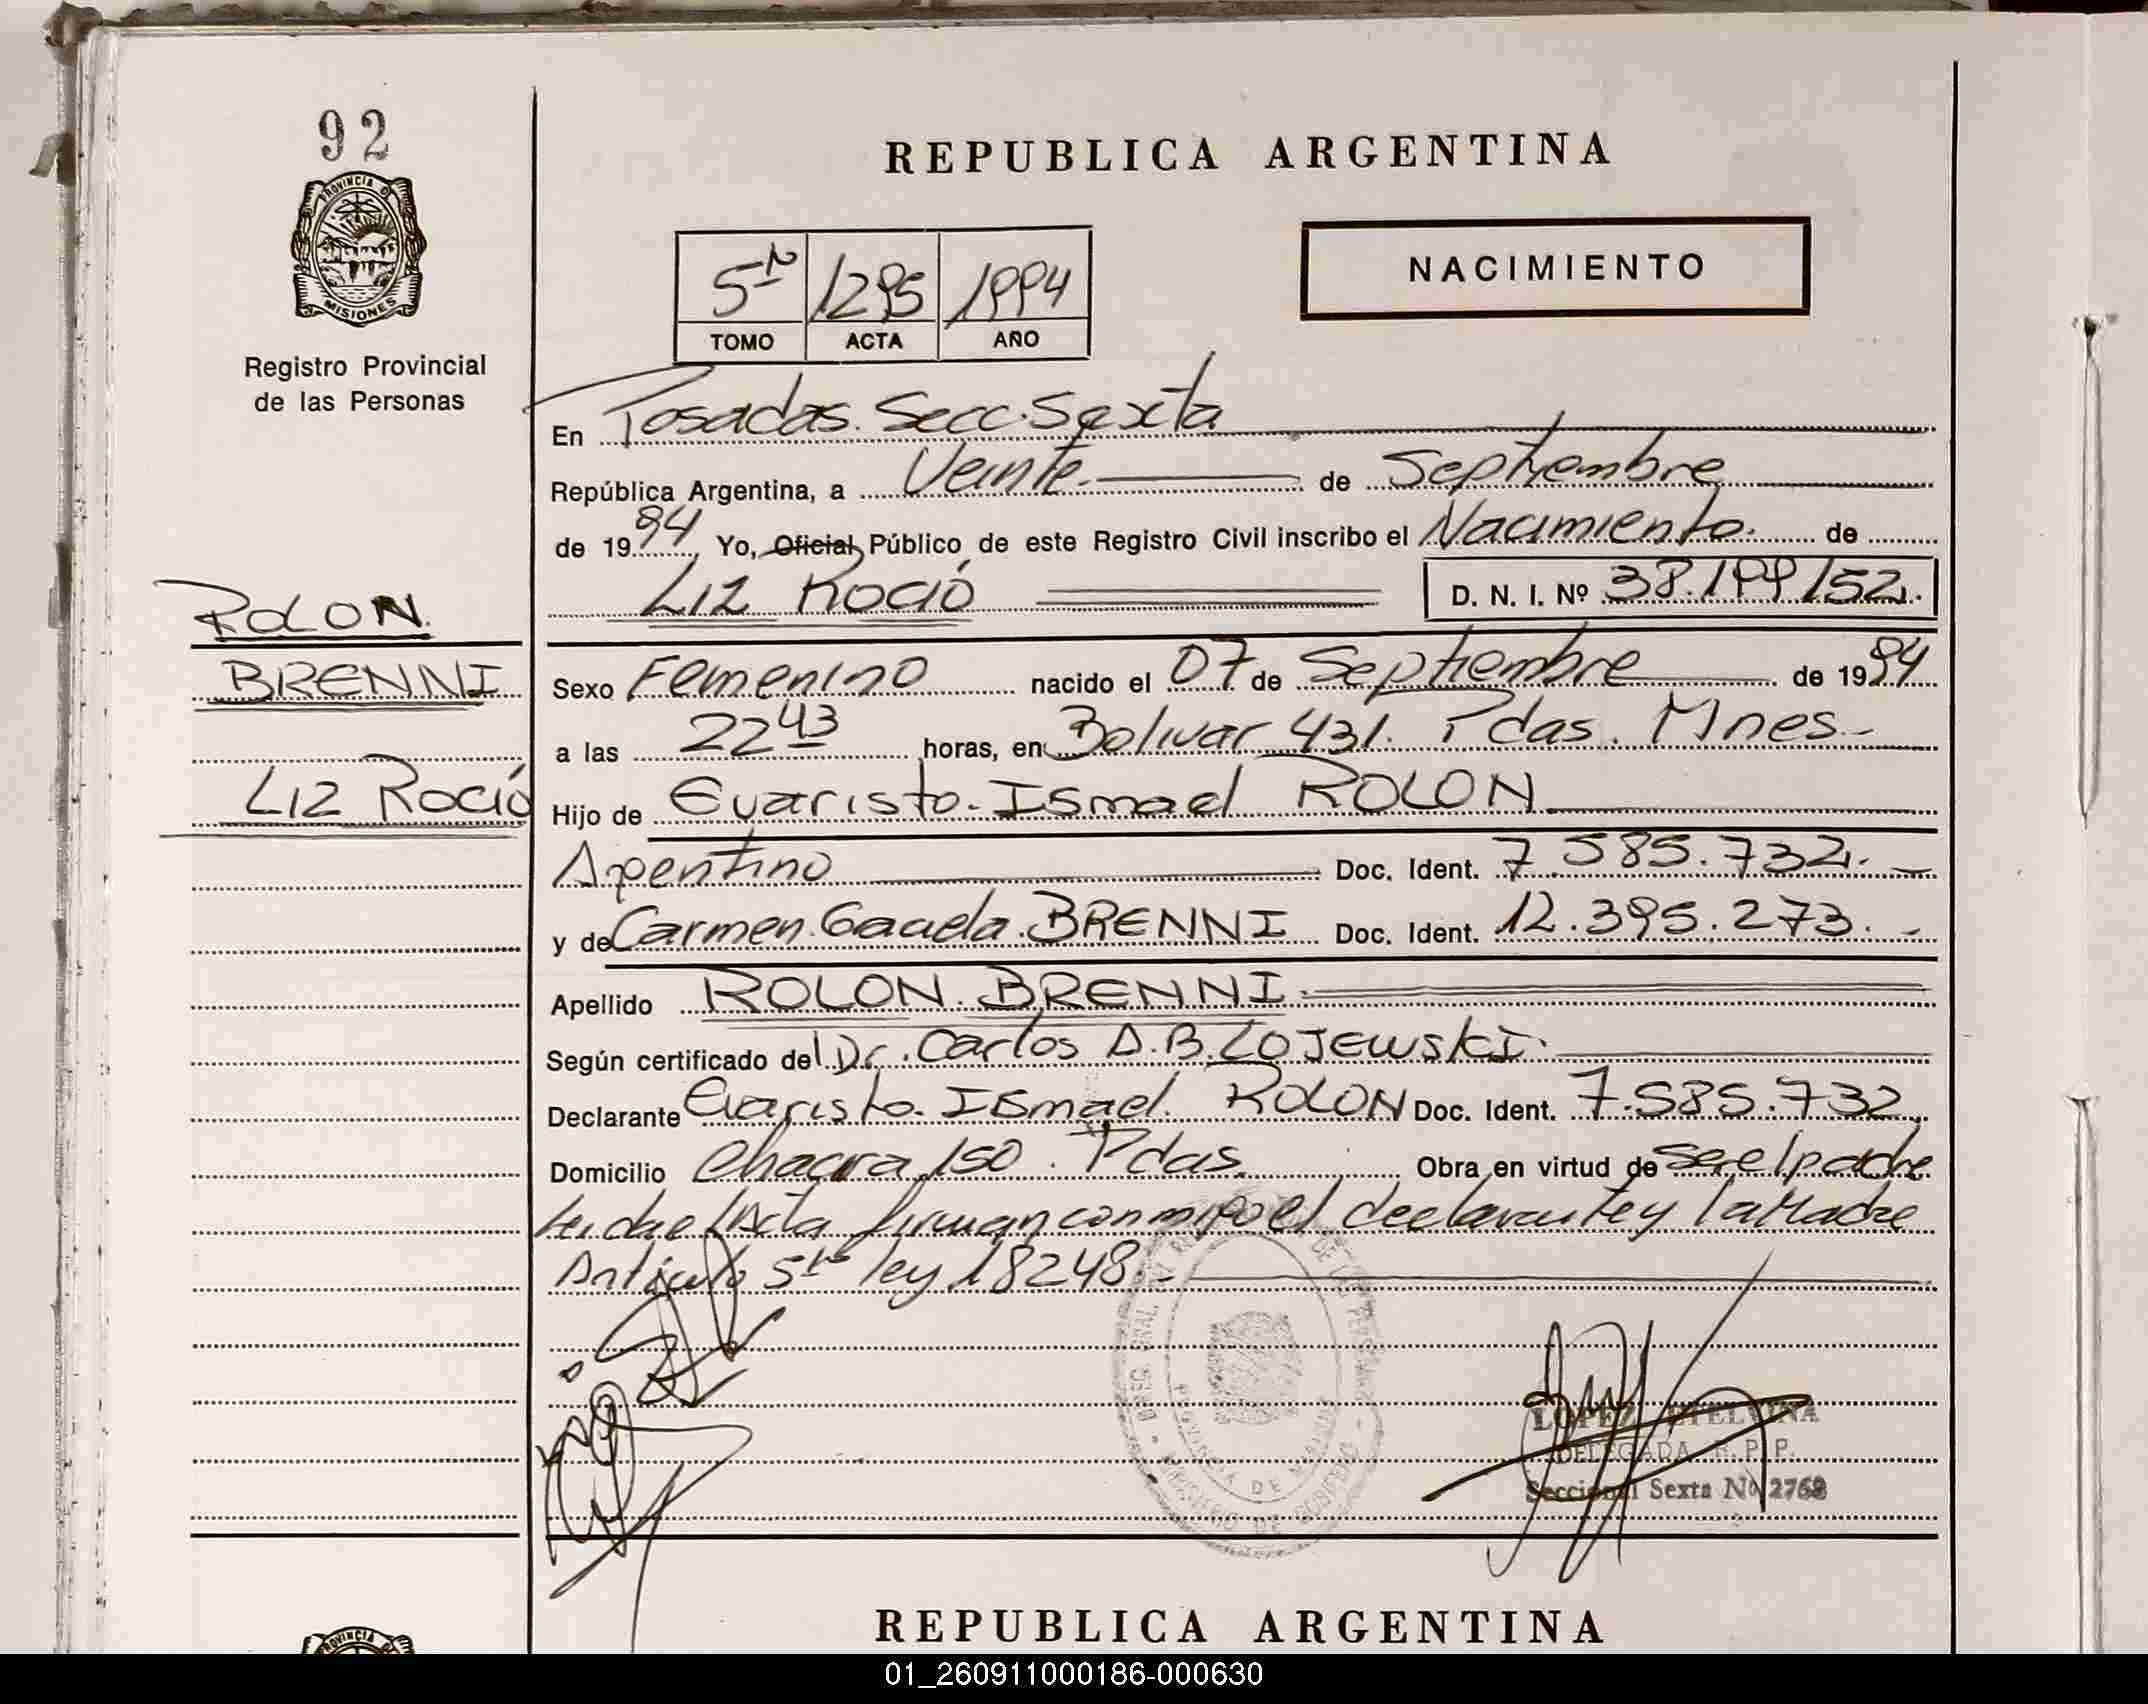 92
PROVINCIA D
MISIONES
Registro Provincial
de las Personas
ROLON.
BRENNI
Liz Roció
REPUBLICA ARGENTINA
NACIMIENTO
5to 1295 1994
TOMO ACTA AÑO
En Posadas. Secc. Sexta
República Argentina, a Veinte. de Septiembre
de 1994, Yo, Oficial Público de este Registro Civil inscribo el Nacimiento. de
Liz Roció D. N. I. Nº 38.199152.
Sexo Femenino nacido el 07 de Septiembre de 1994
a las 22 43 horas, en Bolivar 431. Pdas. Mnes.-
Hijo de Evaristo. Ismael ROLON
Argentino Doc. Ident. 7 585.732.-
y de Carmen. BRENNI Doc. Ident. 12.395.273.-
Apellido ROLON. BRENNI.
Según certificado del Dr. Carlos A.B. LOJEWSKI.
Declarante Evaristo. Ismael. ROLON Doc. Ident. 7.585.732.
Domicilio Chacra 150. Pdas. Obra en virtud de ser el padre
Leida el Acta firman conmigo el declarante y la Madre
Articulo 5to ley 18248.-
PROVINCIA DE MISIONES
MINISTERIO DE GOBIERNO
LOPEZ ETELVINA
DELEGADA R. P. P.
Seccional Sexta Nº 2768
REPUBLICA ARGENTINA
PROVINCIA D
01_260911000186-000630